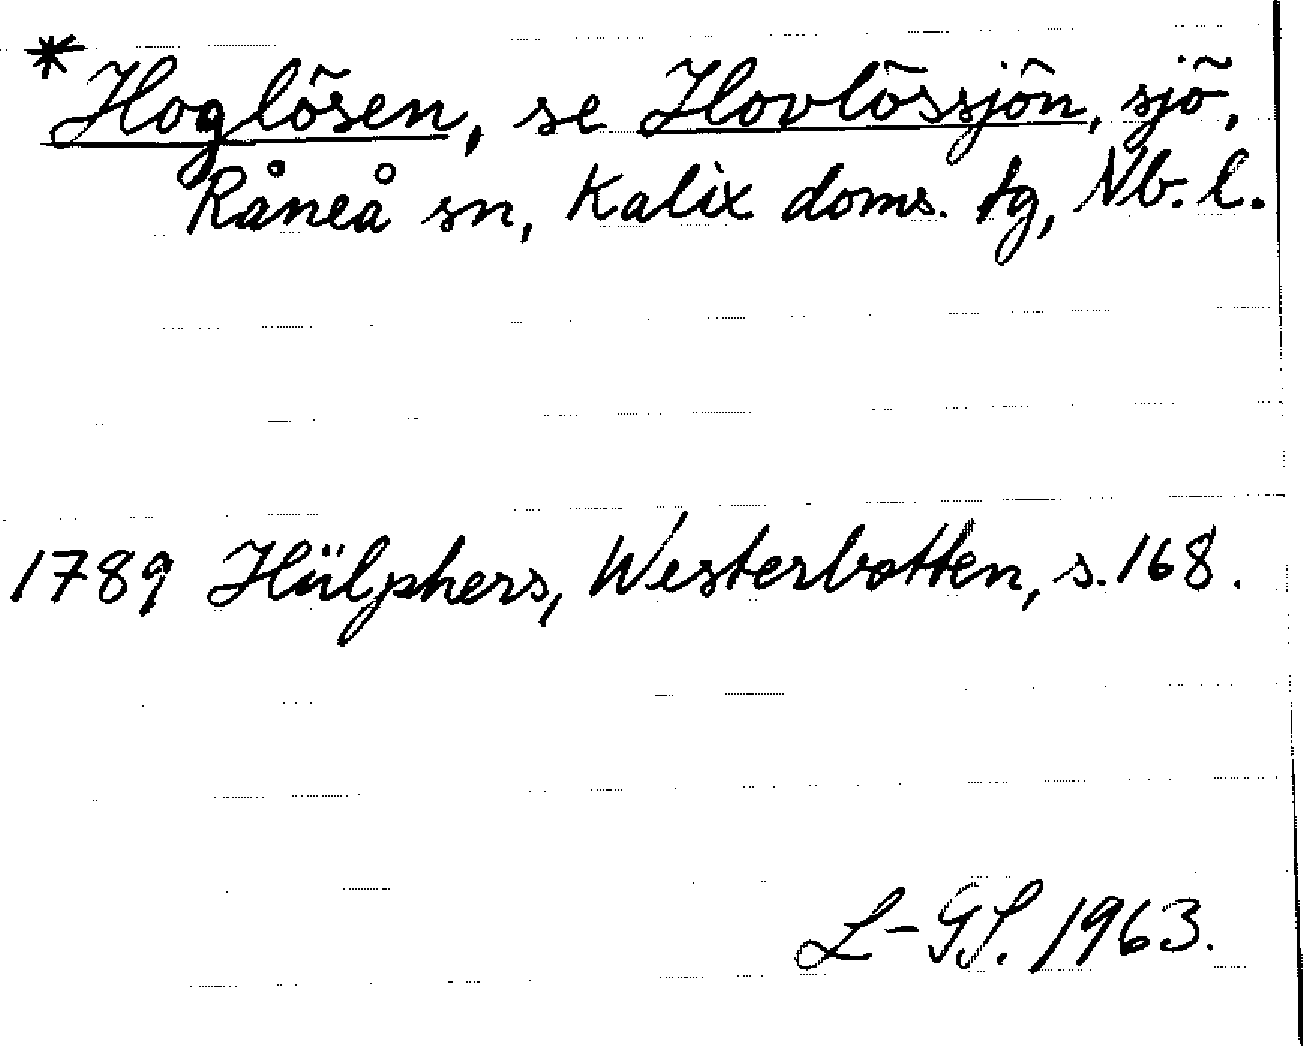 *Hoglösen, se Hovlössjön, sjö,
Råneå sn, Kalix doms. tg, Nb. l.
1789 Hülphers, Westerbotten, s. 168.
L-GS. 1963.